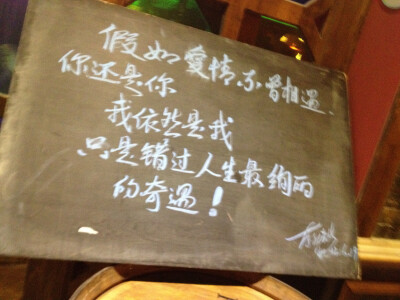 假如愛情不曾相遇、
你还是你
我依然是我
只是错过人生最绚丽
的奇遇！